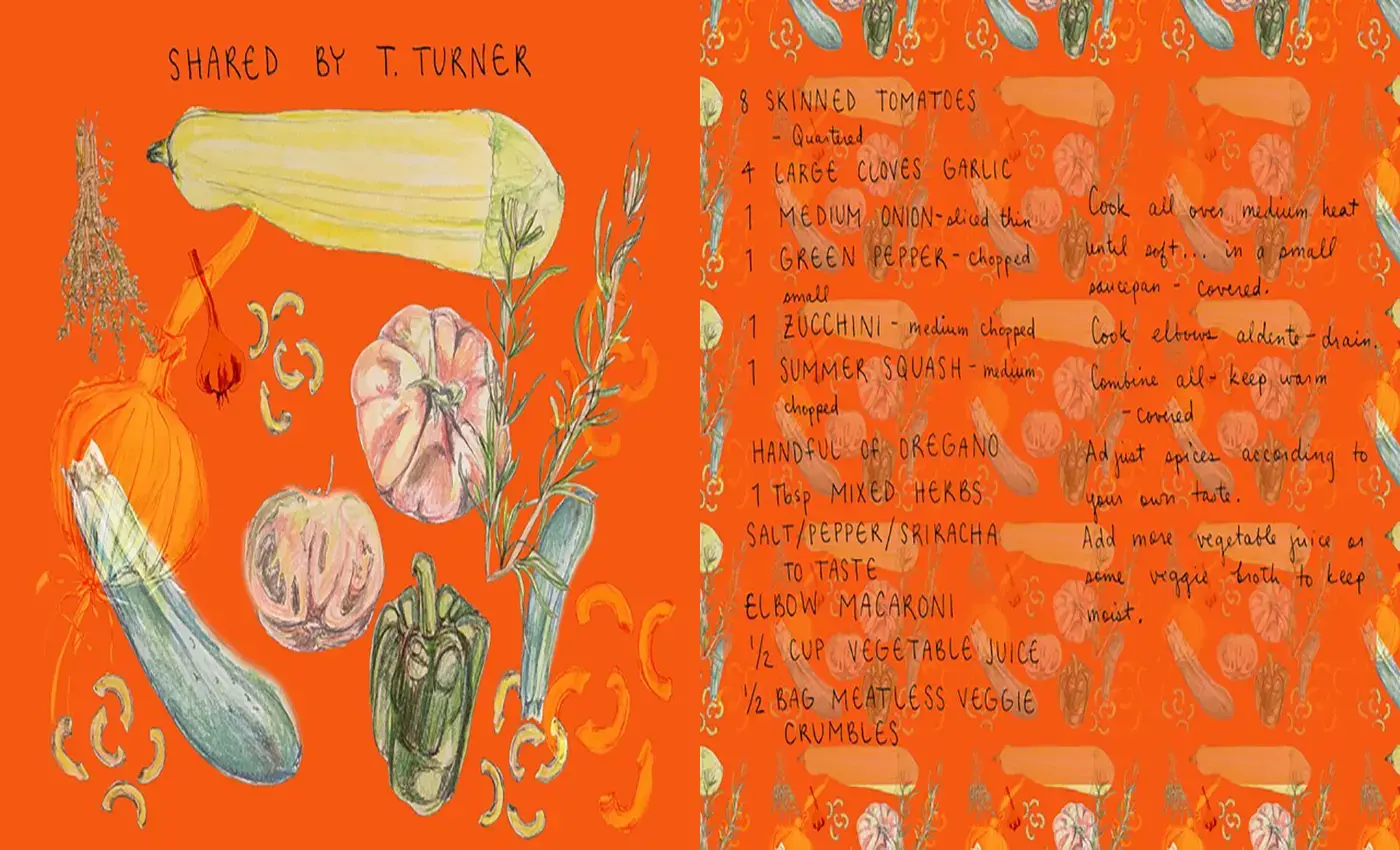 SHARED BY T. TURNER
8 SKINNED TOMATOES
- Quartered
4 LARGE CLOVES GARLIC
1 MEDIUM ONION - sliced thin
1 GREEN PEPPER - chopped
small
1 ZUCCHINI - medium chopped
1 SUMMER SQUASH - medium
chopped
HANDFUL OF OREGANO
1 Tbsp MIXED HERBS
SALT/PEPPER/SRIRACHA
TO TASTE
ELBOW MACARONI
1/2 CUP VEGETABLE JUICE
1/2 BAG MEATLESS VEGGIE
CRUMBLES
Cook all over medium heat
until soft... in a small
saucepan - covered.
Cook elbows aldente - drain.
Combine all - keep warm
- covered
Adjust spices according to
your own taste.
Add more vegetable juice or
some veggie broth to keep
moist.